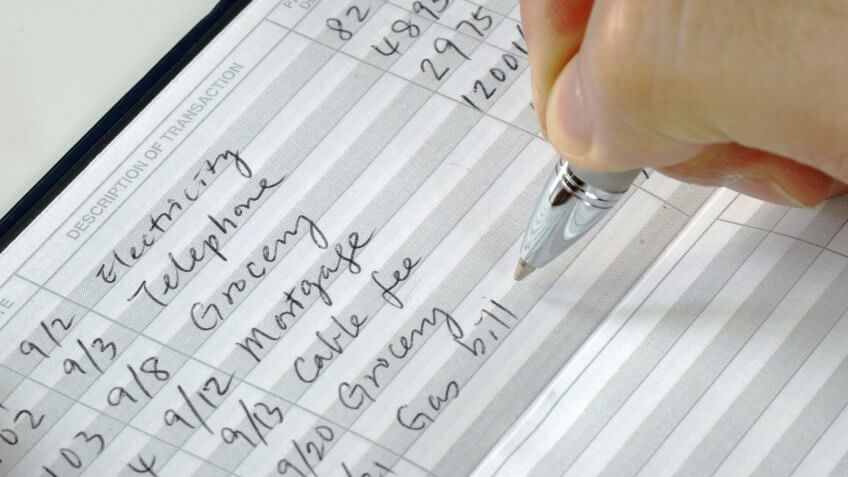 DESCRIPTION OF TRANSACTION
9/2 Electricity 82
02 9/3 Telephone 48 95
103 9/8 Grocery 29 75
4 9/12 Mortgage 1200
9/13 Cable fee
9/20 Grocery
Gas bill